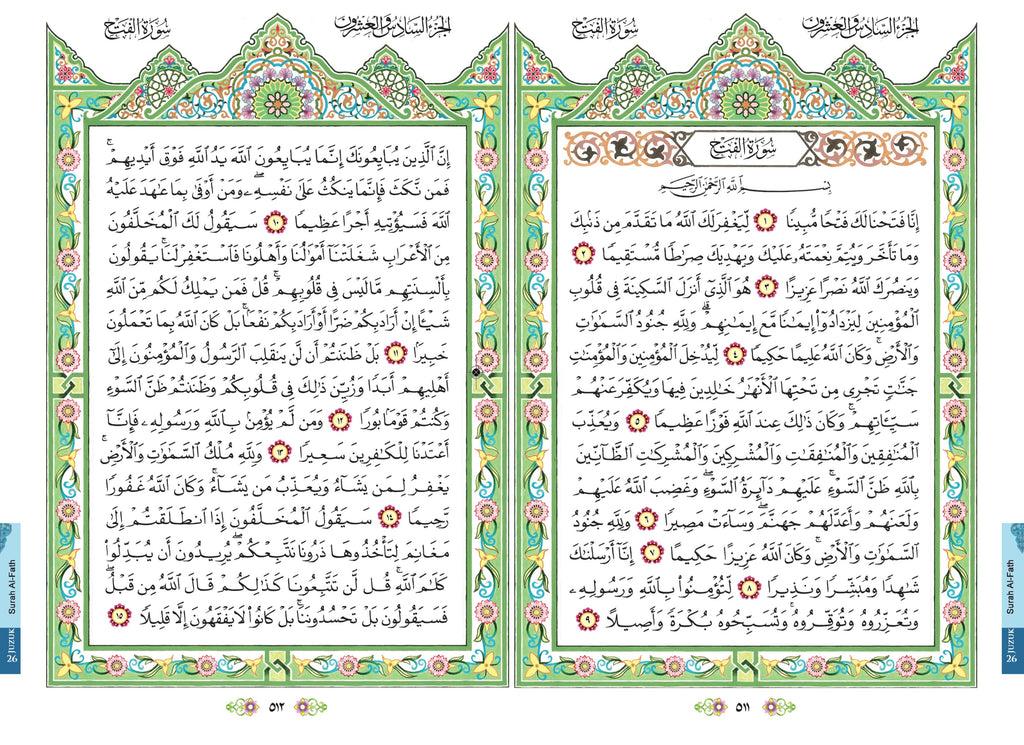 الجزء السادس والعشرون
سُورَةُ الفَتْحِ
سُورَةُ الفَتْحِ
بِسْمِ اللَّهِ الرَّحْمَٰنِ الرَّحِيمِ
إِنَّا فَتَحْنَا لَكَ فَتْحًا مُّبِينًا ١ لِّيَغْفِرَ لَكَ اللَّهُ مَا تَقَدَّمَ مِن ذَنبِكَ
وَمَا تَأَخَّرَ وَيُتِمَّ نِعْمَتَهُۥ عَلَيْكَ وَيَهْدِيَكَ صِرَٰطًا مُّسْتَقِيمًا ٢
وَيَنصُرَكَ اللَّهُ نَصْرًا عَزِيزًا ٣ هُوَ الَّذِيٓ أَنزَلَ السَّكِينَةَ فِي قُلُوبِ
الْمُؤْمِنِينَ لِيَزْدَادُوٓا۟ إِيمَٰنًا مَّعَ إِيمَٰنِهِمْ ۗ وَلِلَّهِ جُنُودُ السَّمَٰوَٰتِ
وَالْأَرْضِ ۚ وَكَانَ اللَّهُ عَلِيمًا حَكِيمًا ٤ لِّيُدْخِلَ الْمُؤْمِنِينَ وَالْمُؤْمِنَٰتِ
جَنَّٰتٍ تَجْرِي مِن تَحْتِهَا الْأَنْهَٰرُ خَٰلِدِينَ فِيهَا وَيُكَفِّرَ عَنْهُمْ
سَيِّـَٔاتِهِمْ ۚ وَكَانَ ذَٰلِكَ عِندَ اللَّهِ فَوْزًا عَظِيمًا ٥ وَيُعَذِّبَ
الْمُنَٰفِقِينَ وَالْمُنَٰفِقَٰتِ وَالْمُشْرِكِينَ وَالْمُشْرِكَٰتِ الظَّآنِّينَ
بِاللَّهِ ظَنَّ السَّوْءِ ۚ عَلَيْهِمْ دَآئِرَةُ السَّوْءِ ۖ وَغَضِبَ اللَّهُ عَلَيْهِمْ
وَلَعَنَهُمْ وَأَعَدَّ لَهُمْ جَهَنَّمَ ۖ وَسَآءَتْ مَصِيرًا ٦ وَلِلَّهِ جُنُودُ
السَّمَٰوَٰتِ وَالْأَرْضِ ۚ وَكَانَ اللَّهُ عَزِيزًا حَكِيمًا ٧ إِنَّآ أَرْسَلْنَٰكَ
شَٰهِدًا وَمُبَشِّرًا وَنَذِيرًا ٨ لِّتُؤْمِنُوا۟ بِاللَّهِ وَرَسُولِهِۦ
وَتُعَزِّرُوهُ وَتُوَقِّرُوهُ ۚ وَتُسَبِّحُوهُ بُكْرَةً وَأَصِيلًا ٩
٥١١
Surah Al-Fath
JUZUK
26
الجزء السادس والعشرون
سُورَةُ الفَتْحِ
إِنَّ الَّذِينَ يُبَايِعُونَكَ إِنَّمَا يُبَايِعُونَ اللَّهَ يَدُ اللَّهِ فَوْقَ أَيْدِيهِمْ ۚ
فَمَن نَّكَثَ فَإِنَّمَا يَنكُثُ عَلَىٰ نَفْسِهِۦ ۖ وَمَنْ أَوْفَىٰ بِمَا عَٰهَدَ عَلَيْهُ
اللَّهَ فَسَيُؤْتِيهِ أَجْرًا عَظِيمًا ١٠ سَيَقُولُ لَكَ الْمُخَلَّفُونَ
مِنَ الْأَعْرَابِ شَغَلَتْنَآ أَمْوَٰلُنَا وَأَهْلُونَا فَاسْتَغْفِرْ لَنَا ۚ يَقُولُونَ
بِأَلْسِنَتِهِم مَّا لَيْسَ فِي قُلُوبِهِمْ ۚ قُلْ فَمَن يَمْلِكُ لَكُم مِّنَ اللَّهِ
شَيْـًٔا إِنْ أَرَادَ بِكُمْ ضَرًّا أَوْ أَرَادَ بِكُمْ نَفْعًۢا ۚ بَلْ كَانَ اللَّهُ بِمَا تَعْمَلُونَ
خَبِيرًۢا ١١ بَلْ ظَنَنتُمْ أَن لَّن يَنقَلِبَ الرَّسُولُ وَالْمُؤْمِنُونَ إِلَىٰٓ
أَهْلِيهِمْ أَبَدًا وَزُيِّنَ ذَٰلِكَ فِي قُلُوبِكُمْ وَظَنَنتُمْ ظَنَّ السَّوْءِ
وَكُنتُمْ قَوْمًۢا بُورًا ١٢ وَمَن لَّمْ يُؤْمِنۢ بِاللَّهِ وَرَسُولِهِۦ فَإِنَّآ
أَعْتَدْنَا لِلْكَٰفِرِينَ سَعِيرًا ١٣ وَلِلَّهِ مُلْكُ السَّمَٰوَٰتِ وَالْأَرْضِ ۚ
يَغْفِرُ لِمَن يَشَآءُ وَيُعَذِّبُ مَن يَشَآءُ ۚ وَكَانَ اللَّهُ غَفُورًا
رَّحِيمًا ١٤ سَيَقُولُ الْمُخَلَّفُونَ إِذَا انطَلَقْتُمْ إِلَىٰ
مَغَانِمَ لِتَأْخُذُوهَا ذَرُونَا نَتَّبِعْكُمْ ۖ يُرِيدُونَ أَن يُبَدِّلُوا۟
كَلَٰمَ اللَّهِ ۚ قُل لَّن تَتَّبِعُونَا كَذَٰلِكُمْ قَالَ اللَّهُ مِن قَبْلُ ۖ
فَسَيَقُولُونَ بَلْ تَحْسُدُونَنَا ۚ بَلْ كَانُوا۟ لَا يَفْقَهُونَ إِلَّا قَلِيلًا ١٥
٥١٢
Surah Al-Fath
JUZUK
26